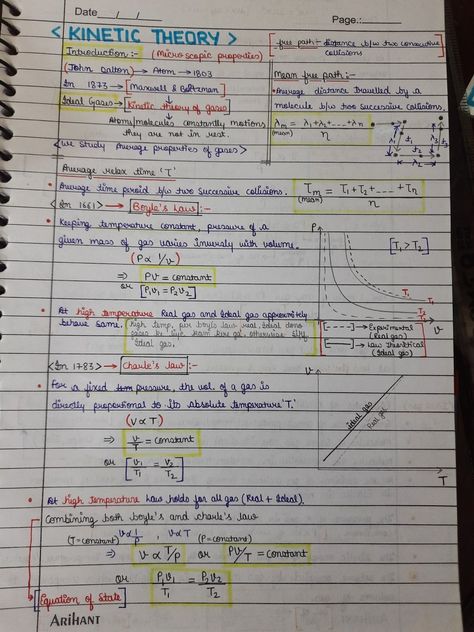 Date __/__/__
Page.:
< KINETIC THEORY >
Introduction :- (Microscopic properties)
(John Dalton) → Atom → 1803
In 1873 → Maxwell &
Ideal Gases → Kinetic theory of gases
Atoms/molecules constantly motions
they are not in rest.
<we Study Average properties of gases>
free path - distance b/w two consecutive
collisions
Mean free path :-
• Average distance travelled by a
molecule b/w two successive collisions.
λm = λ1+λ2+...+λn
(mean) n
λ1 t1 λ3 t3
λ2 t2
Average relax time 'T'
• Average time period b/w two successive collisions.
Tm = T1+T2+...+Tn
(mean) n
<In 1661> → Boyle's Law :-
• Keeping temperature constant, pressure of a
given mass of gas varies inversly with volume.
(P ∝ 1/v)
⇒ PV = constant
or [P1V1 = P2V2]
P
[T1 > T2]
T1
T2
V
• At high temperature Real gas and Ideal gas approximtely
behave same.
high temp, per boyle law real, Ideal
Ideal gas.
[----] → Experimental
(Real gas)
[—] → Law theoritical
(Ideal gas)
<In 1783> → Charle's law :-
• For a fixed tem pressure, the vol. of a gas is
directly proportional to its absolute temperature 'T'.
(V ∝ T)
⇒ V/T = constant
or [V1/T1 = V2/T2]
V
Ideal gas
Real gas
T
• At high temperature Law holds for all gas (Real + Ideal)
Combining both boyle's and charle's law
(T=constant) V∝1/P , V∝T (P=constant)
⇒ V ∝ T/P or PV/T = constant
or P1V1/T1 = P2V2/T2
[Equation of State]
ARIHANT